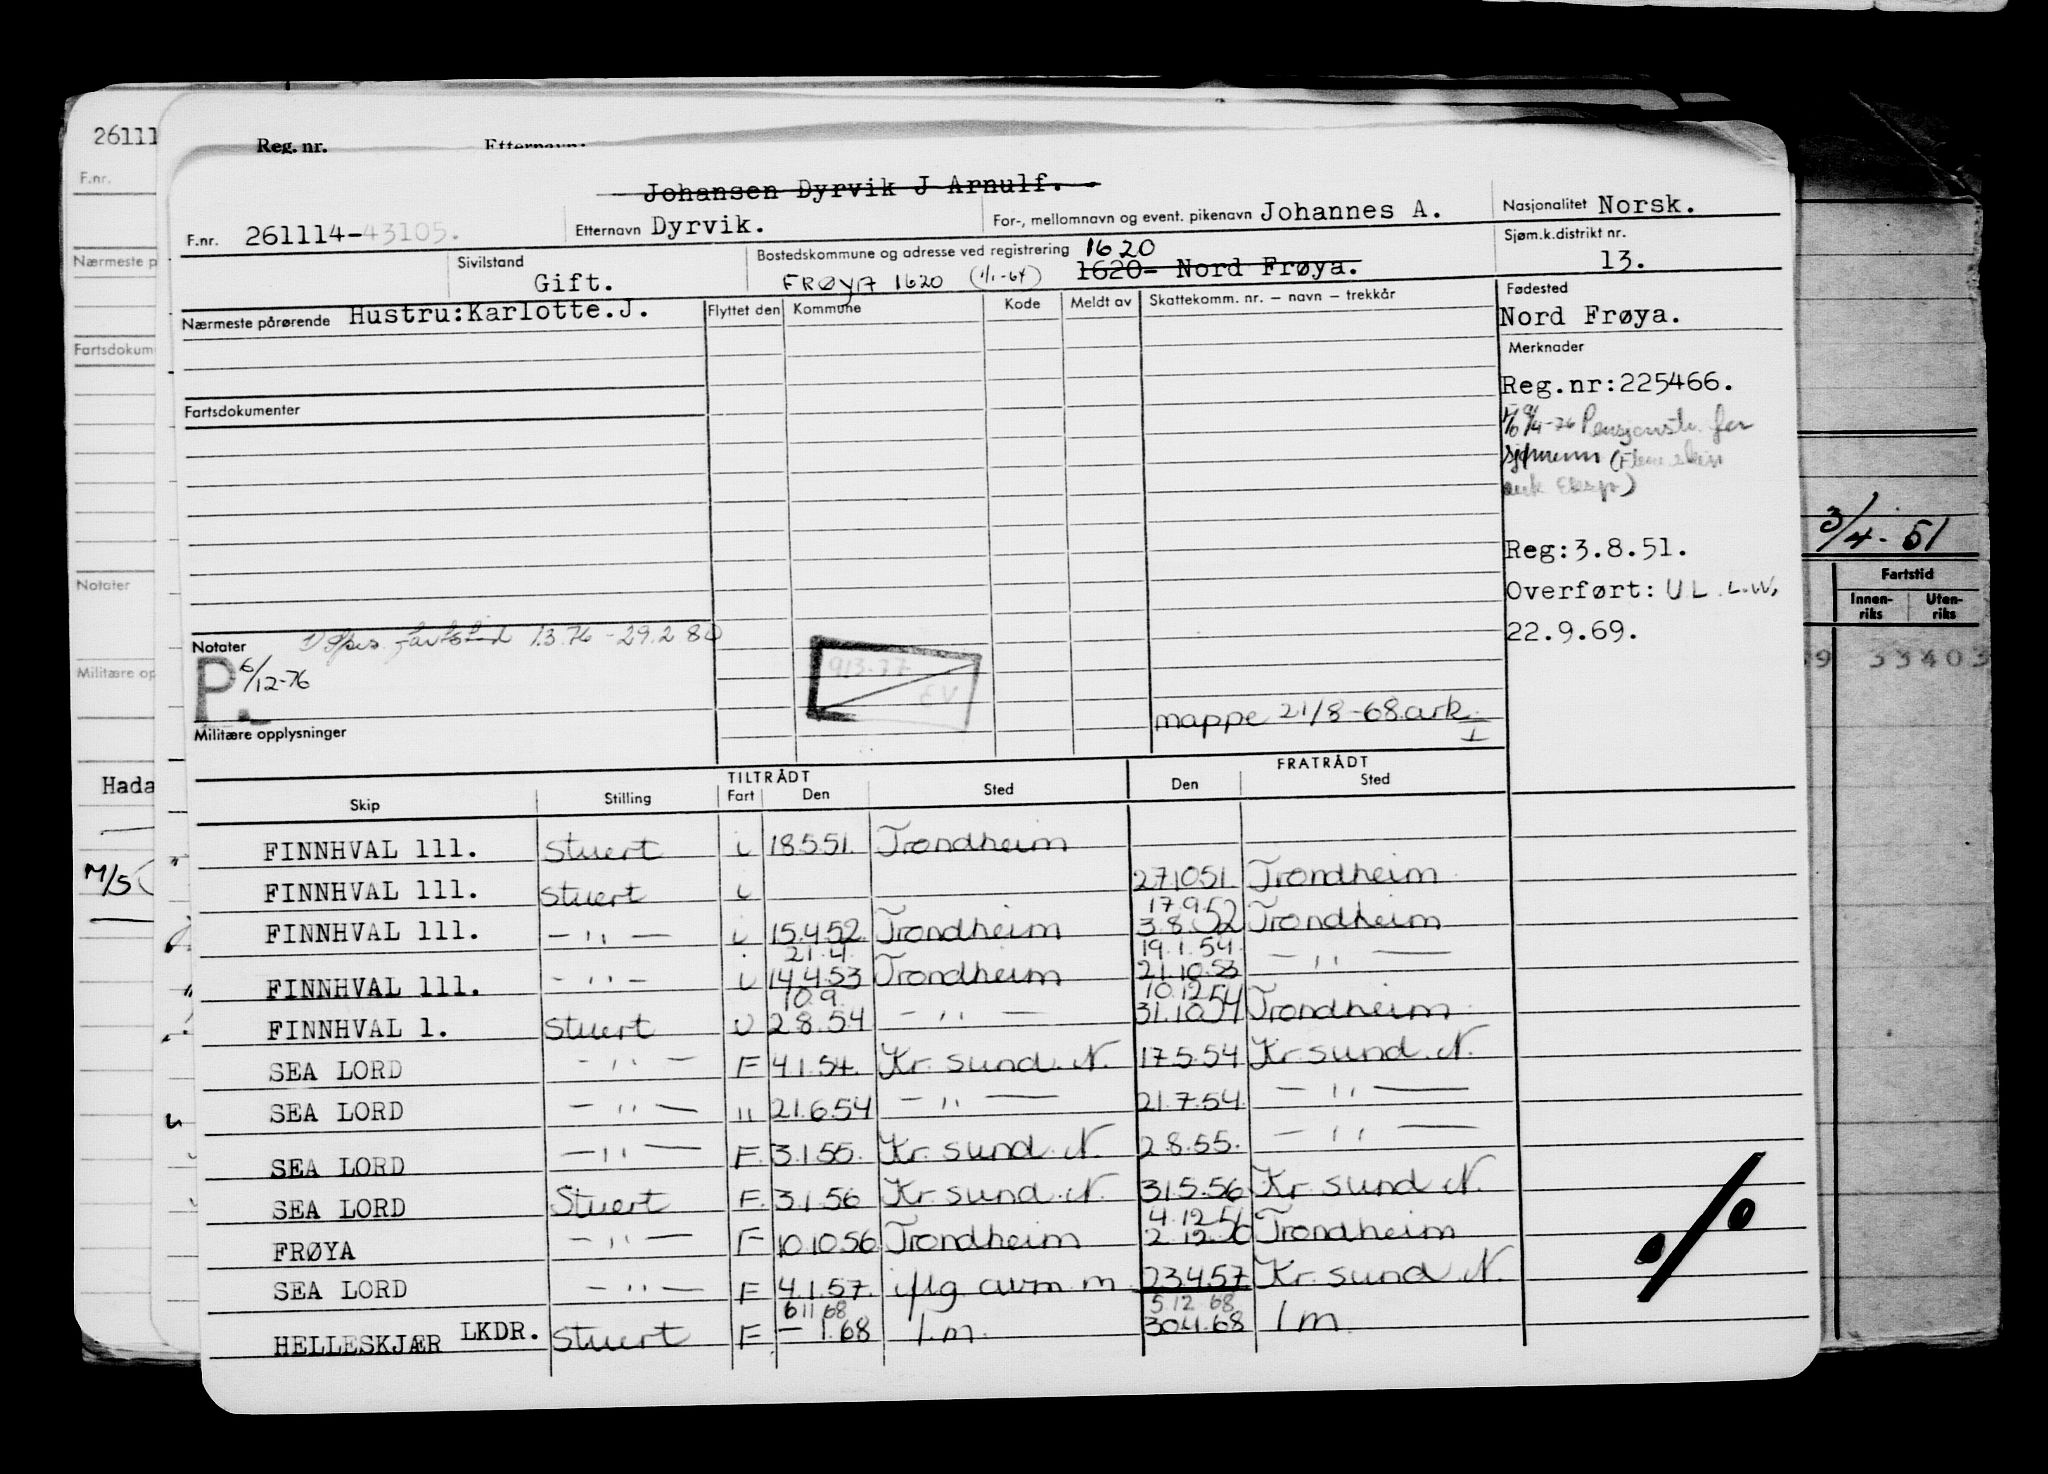 26111
F.nr.
Nærmeste p
Fartsdokum
Notater
Militære op
Hada
M/S
Reg. nr. Etternavn:
Johansen Dyrvik J Arnulf.
F.nr. 261114-43105. Etternavn Dyrvik. For-, mellomnavn og event. pikenavn Johannes A. Nasjonalitet Norsk.
Sivilstand Gift. Bostedskommune og adresse ved registrering 1620 Sjøm.k.distrikt nr. 13.
FRØYA 1620 (1/1-64) 1620- Nord Frøya.
Nærmeste pårørende Hustru:Karlotte.J. Flyttet den Kommune Kode Meldt av Skattekomm. nr. – navn – trekkår Fødested
Nord Frøya.
Merknader
Reg.nr:225466.
Fartsdokumenter
Pensjonstr. for
sjømenn
Reg:3.8.51.
Overført: UL L.W.
22.9.69.
Notater 1) Spes. fartstid 1.3.76 - 29.2.80
P. 6/12-76
913-77
EV
mappe 21/8-68 ark. I
Militære opplysninger
3/4-51
Fartstid
Innen-riks Uten-riks
9 33403
TILTRÅDT FRATRÅDT
Skip Stilling Fart Den Sted Den Sted
FINNHVAL 111. Stuert U 18.5.51. Trondheim
FINNHVAL 111. Stuert U 27.10.51. Trondheim
17.9.52
FINNHVAL 111. -"- U 15.4.52. Trondheim 3.8.52 Trondheim
21.4. 19.1.54.
FINNHVAL 111. -"- U 14.4.53 Trondheim 21.10.53 -"-
10.9. 10.12.54
FINNHVAL 1. Stuert U 2.8.54 -"- 31.10.54 Trondheim
SEA LORD -"- F 4.1.54. Kr.sund.N. 17.5.54 Kr.sund.N.
SEA LORD -"- " 21.6.54 -"- 21.7.54. -"-
SEA LORD -"- F. 3.1.55. Kr.sund.N. 2.8.55. -"-
SEA LORD Stuert F. 3.1.56 Kr.sund.N. 31.5.56 Kr.sund N.
4.12.51
FRØYA -"- F 10.10.56 Trondheim 2.12.50 Trondheim
SEA LORD -"- F 4.1.57. iflg avm m. 23.4.57 Kr.sund N.
6 11 68 5.12.68
HELLESKJÆR LKDR. Stuert F - 1.68 1.m. 30.4.68 1 m.
./.